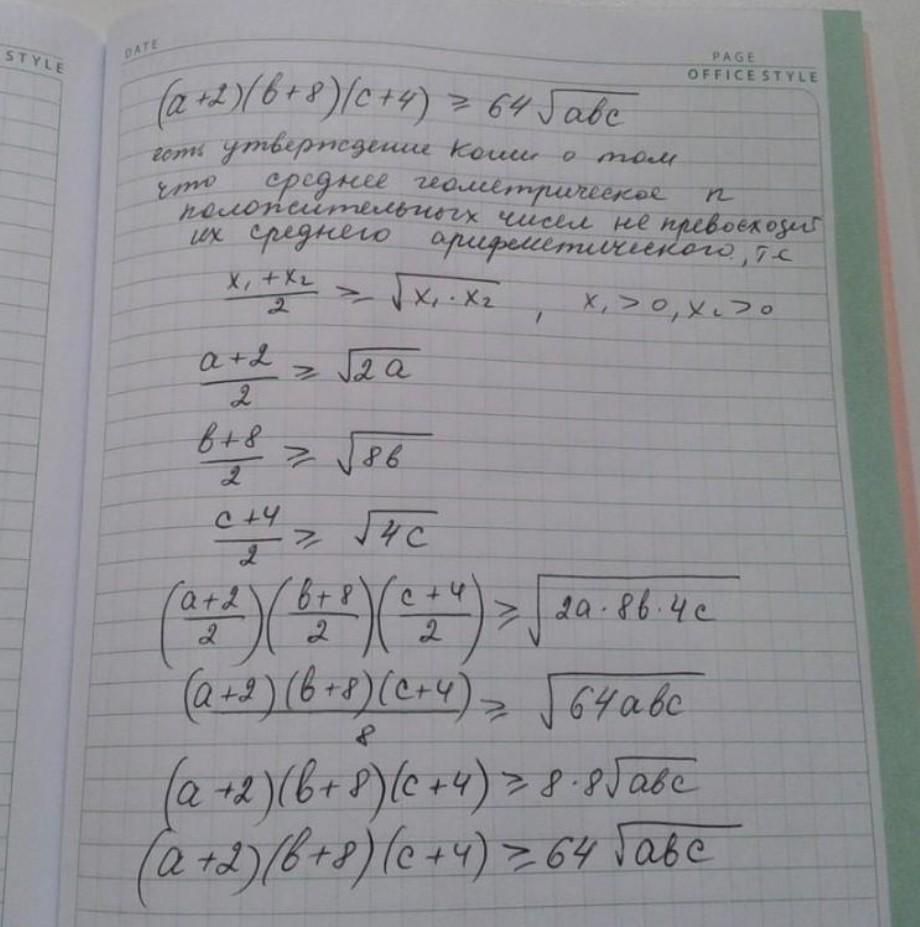 STYLE
DATE
PAGE
OFFICE STYLE
(a+2)(b+8)(c+4) ≥ 64√abc
есть утверждение Коши о том
что среднее геометрическое n
положительных чисел не превосходит
их среднего арифметического, т.е
(x₁+x₂)/2 ≥ √(x₁·x₂), x₁>0, x₂>0
(a+2)/2 ≥ √(2a)
(b+8)/2 ≥ √(8b)
(c+4)/2 ≥ √(4c)
((a+2)/2)((b+8)/2)((c+4)/2) ≥ √(2a·8b·4c)
(a+2)(b+8)(c+4)/8 ≥ √(64abc)
(a+2)(b+8)(c+4) ≥ 8·8√abc
(a+2)(b+8)(c+4) ≥ 64√abc